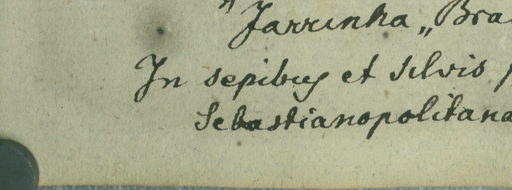 " Jarrinha „ Bra
In sepibus et silvis
Sebastianopolitana